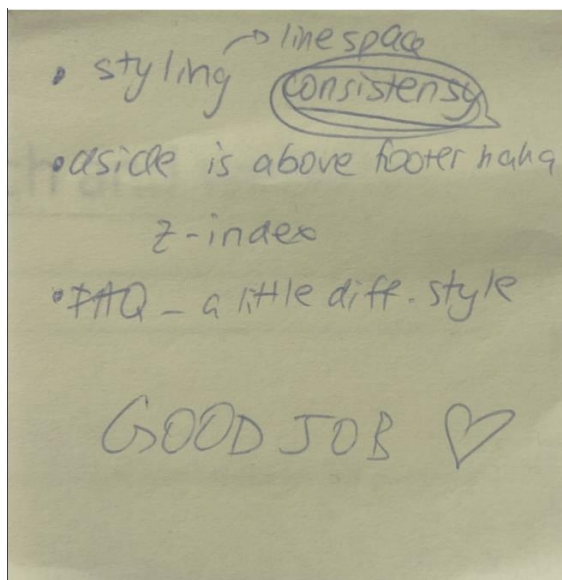 line space
• styling → consistensy
• aside is above footer haha
z-index
• FAQ - a little diff. style
GOOD JOB ♡